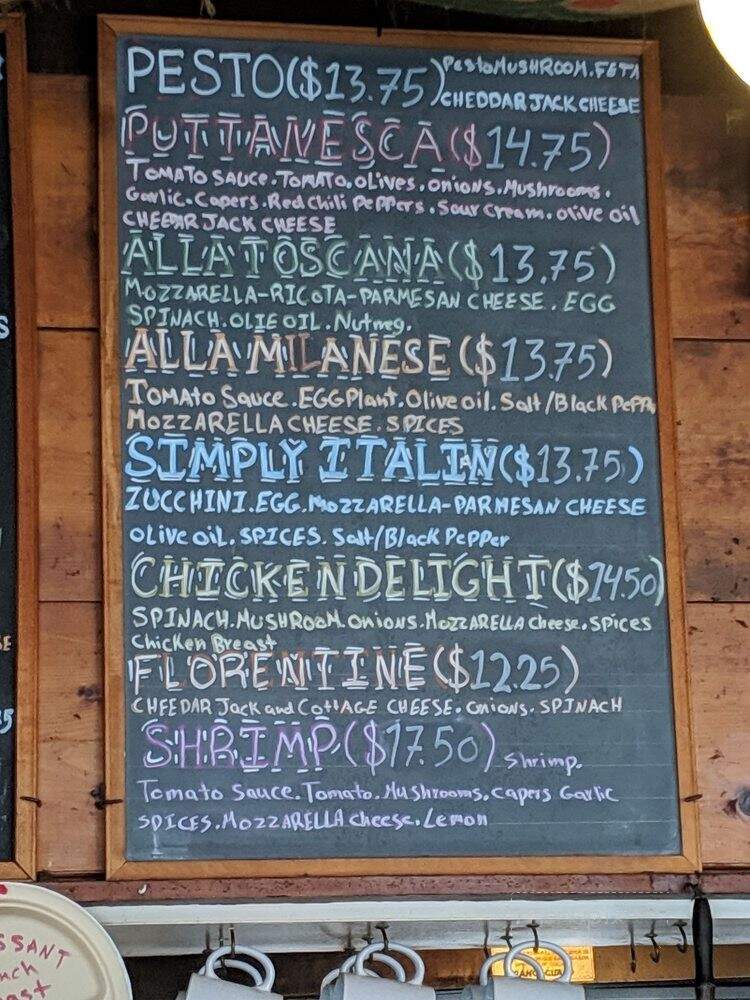 PESTO($13.75) Pesto MUSHROOM. FETA
CHEDDAR JACK CHEESE
PUTTANESCA ($14.75)
TOMATO SAUCE. TOMATO. OLIVES. ONIONS. MUSHROOMS.
Garlic. Capers. Red chili Peppers. Sour cream. olive oil
CHEEDAR JACK CHEESE
ALLA TOSCANA ($13.75)
MOZZARELLA-RICOTA-PARMESAN CHEESE. EGG
SPINACH. OLIE OIL. Nutmeg.
ALLA MILANESE ($13.75)
TOMATO Sauce. EGGPlant. Olive oil. Salt/Black PePPr
MOZZARELLA CHEESE. SPICES
SIMPLY ITALIAN ($13.75)
ZUCCHINI. EGG. MOZZARELLA-PARMESAN CHEESE
OLive OiL. SPICES. Salt/Black PePPer
CHICKEN DELIGHT ($14.50)
SPINACH. MUSHROOM. Onions. MOZZARELLA cheese. SPices
Chicken Breast
FLORENTINE ($12.25)
CHEEDAR Jack and COttAGE CHEESE. Onions. SPINACH
SHRIMP ($17.50) Shrimp.
Tomato Sauce. Tomato. Mushrooms. Capers Garlic
SPICES. MOZZARELLA cheese. Lemon
SSANT